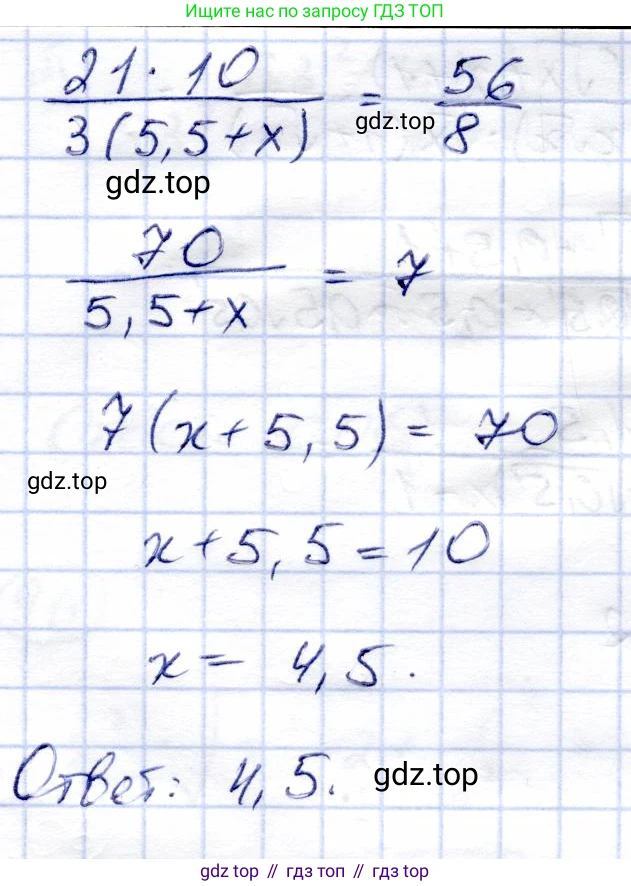 Ищите нас по запросу ГДЗ ТОП
21·10 / 3(5,5+x) = 56 / 8
gdz.top
gdz.top
70 / 5,5+x = 7
7(x+5,5) = 70
gdz.top
x+5,5=10
x= 4,5.
Ответ: 4,5.
gdz.top
gdz.top // гдз топ // гдз.top